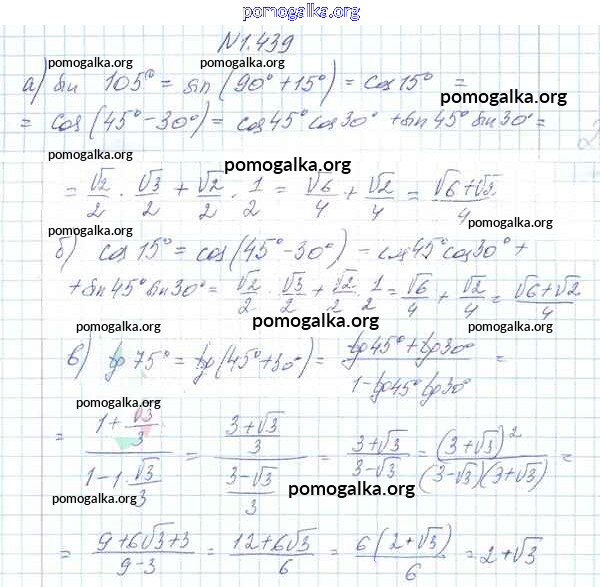 pomogalka.org
N1.439
pomogalka.org pomogalka.org
а) sin 105° = sin (90° + 15°) = cos 15° =
pomogalka.org
= cos (45° - 30°) = cos 45° cos 30° + sin 45° sin 30° =
pomogalka.org
= √2/2 · √3/2 + √2/2 · 1/2 = √6/4 + √2/4 = (√6+√2)/4
pomogalka.org
б) cos 15° = cos (45° - 30°) = cos 45° cos 30° +
pomogalka.org
+ sin 45° sin 30° = √2/2 · √3/2 + √2/2 · 1/2 = √6/4 + √2/4 = (√6+√2)/4
pomogalka.org
pomogalka.org
в) tg 75° = tg (45° + 30°) = (tg 45° + tg 30°)/(1 - tg 45° tg 30°) =
pomogalka.org
= (1 + √3/3)/(1 - 1 · √3/3) = ((3+√3)/3)/((3-√3)/3) = (3+√3)/(3-√3) = (3+√3)²/((3-√3)(3+√3)) =
pomogalka.org pomogalka.org
= (9+6√3+3)/(9-3) = (12+6√3)/6 = 6(2+√3)/6 = 2+√3